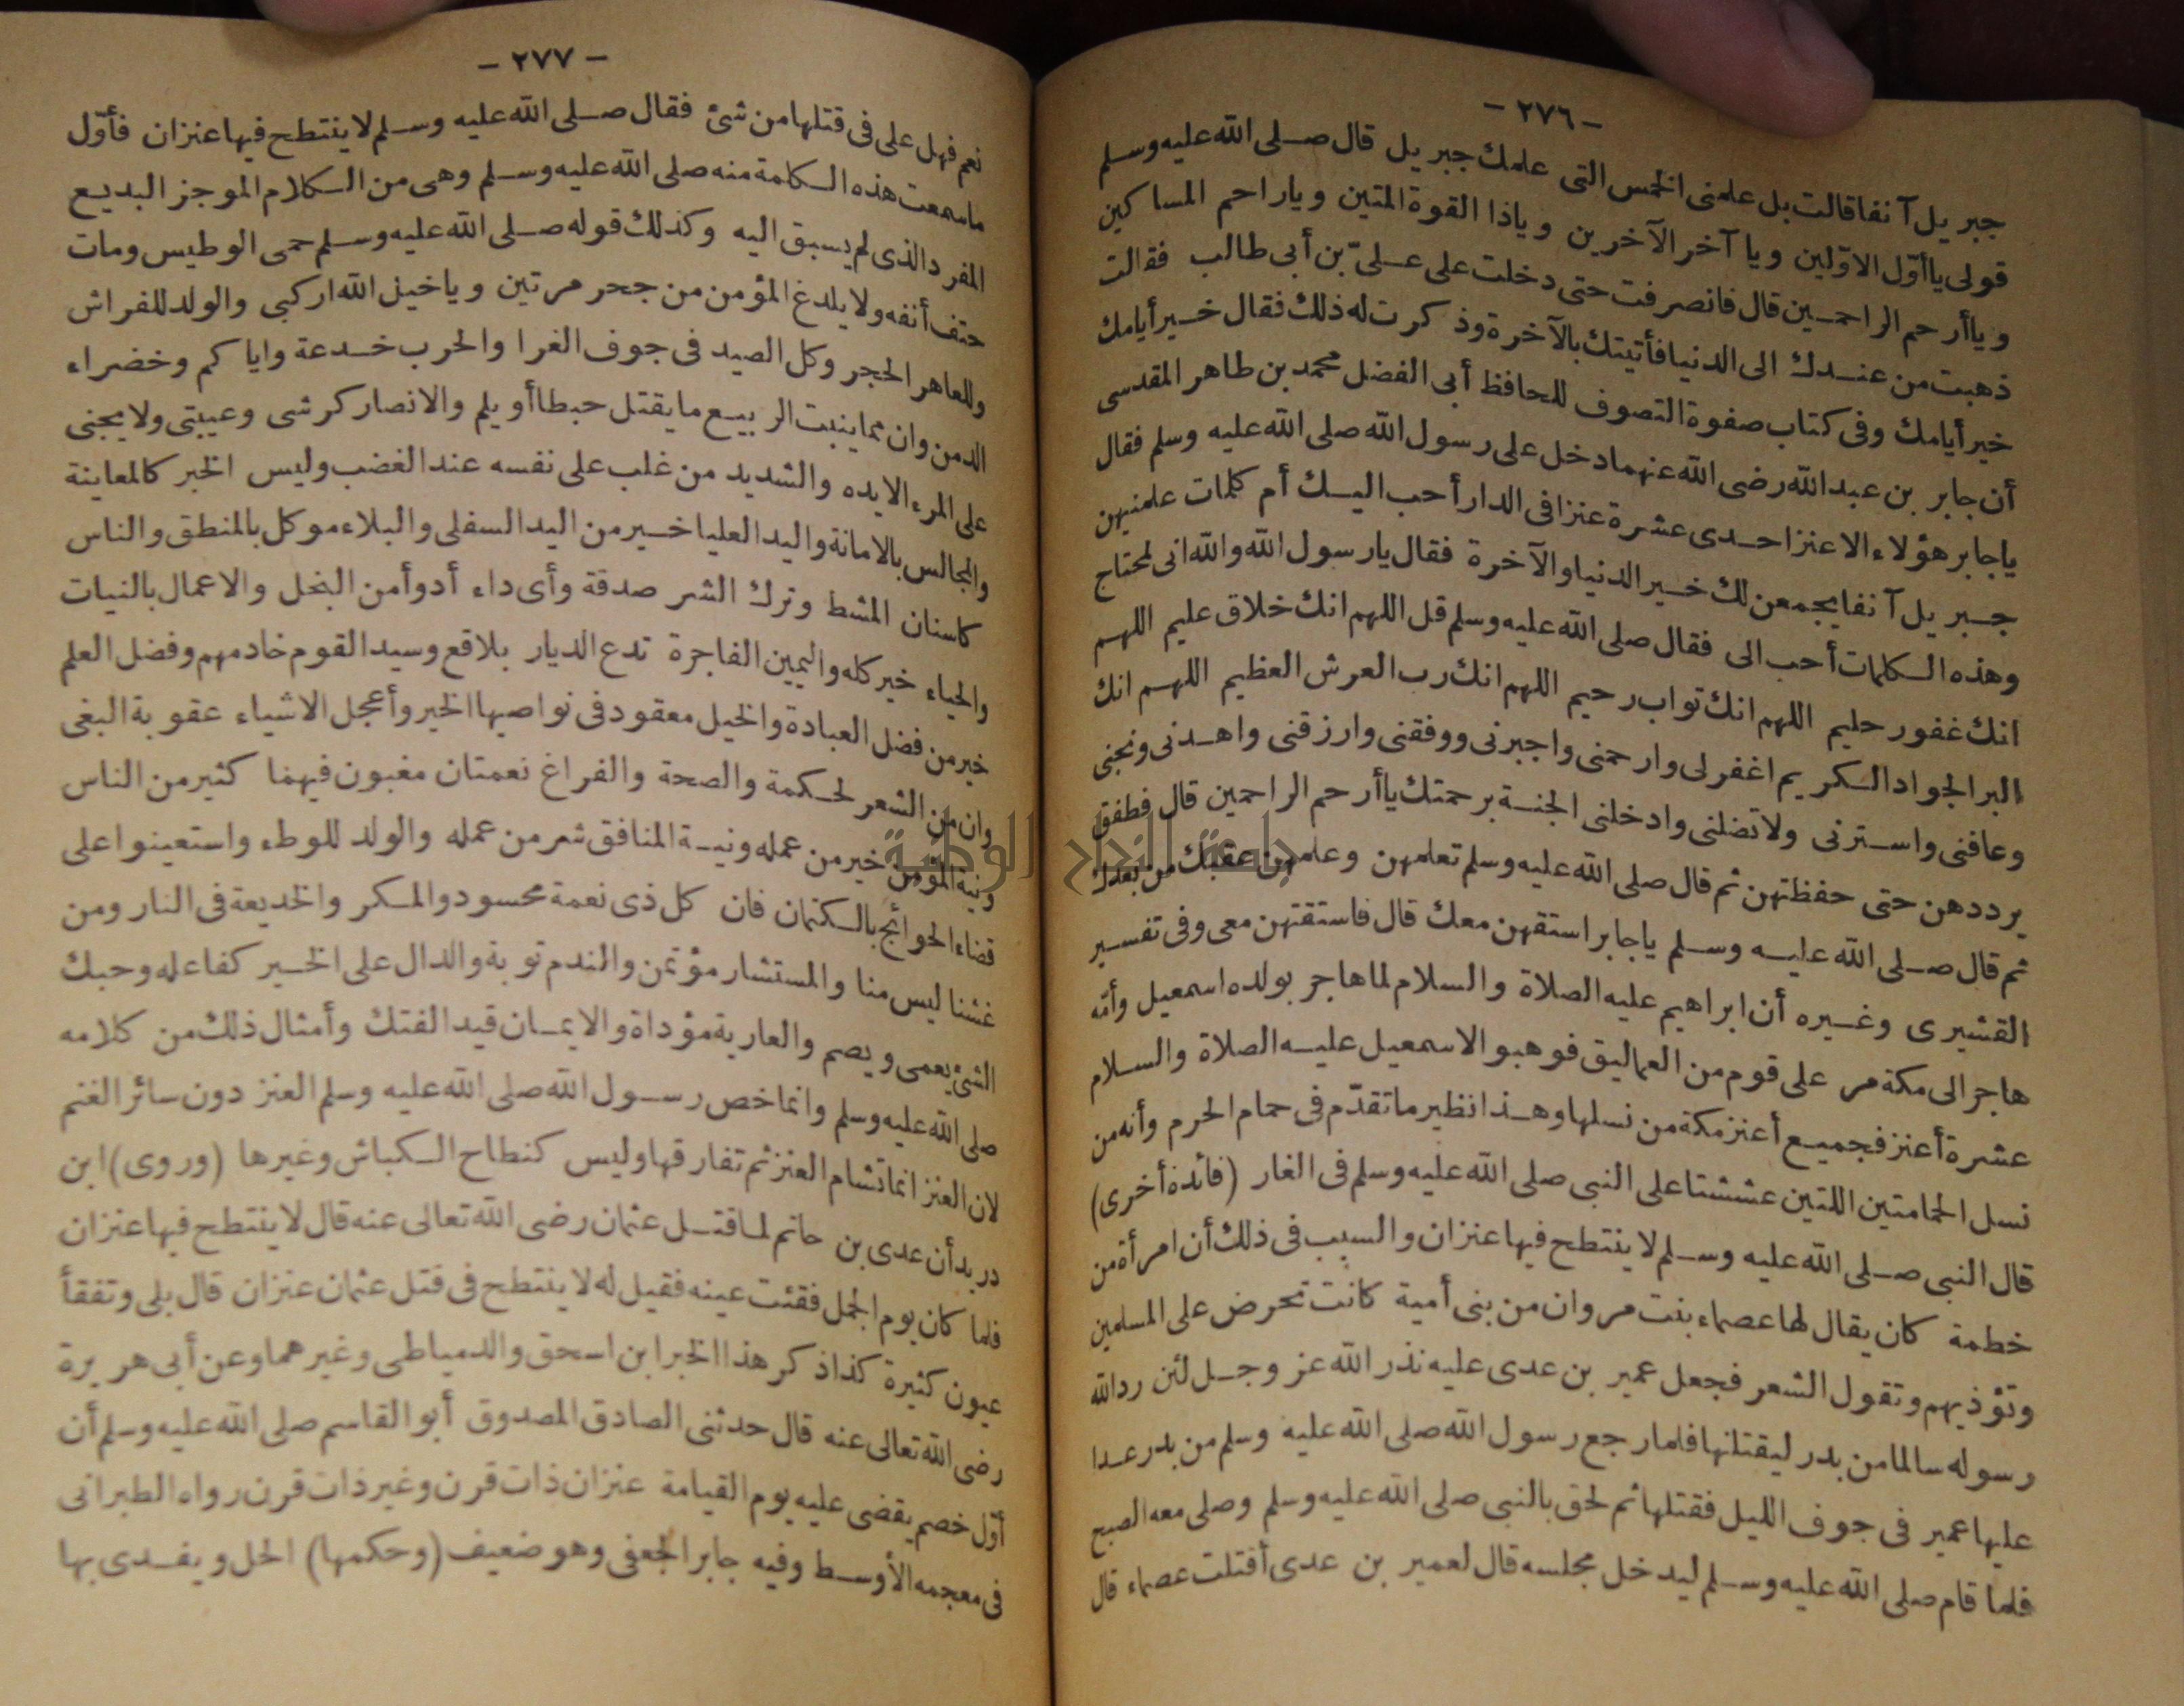 - ٢٧٦ -
جبريل آنفا قالت بل علمنى الخمس التى علمك جبريل قال صلى الله عليه وسلم
قولى يا أوّل الاوّلين ويا آخر الآخرين وياذا القوة المتين ويا راحم المساكين
ويا أرحم الراحمين قال فانصرفت حتى دخلت على علىّ بن أبى طالب فقالت
ذهبت من عندك الى الدنيا فأتيتك بالآخرة وذكرت له ذلك فقال خير أيامك
خير أيامك وفى كتاب صفوة التصوف للحافظ أبى الفضل محمد بن طاهر المقدسى
أن جابر بن عبد الله رضى الله عنهما دخل على رسول الله صلى الله عليه وسلم فقال
يا جابر هؤلاء الاعنز احدى عشرة عنزا فى الدار أحب اليك أم كلمات علمنيهن
جبريل آنفا يجمعن لك خير الدنيا والآخرة فقال يا رسول الله والله انى لمحتاج
وهذه الكلمات أحب الى فقال صلى الله عليه وسلم قل اللهم انك خلاق عليم اللهم
انك غفور حليم اللهم انك تواب رحيم اللهم انك رب العرش العظيم اللهم انك
البر الجواد الكريم اغفر لى وارحمنى واجبرنى ووفقنى وارزقنى واهدنى ونجنى
وعافنى واسترنى ولا تضلنى وادخلنى الجنة برحمتك يا أرحم الراحمين قال فطفق
يرددهن حتى حفظتهن ثم قال صلى الله عليه وسلم تعلمهن وعلمهن عقبك من بعدك
ثم قال صلى الله عليه وسلم يا جابر استقهن معك قال فاستقتهن معى وفى تفسير
القشيرى وغيره أن ابراهيم عليه الصلاة والسلام لما هاجر بولده اسمعيل وأمّه
هاجر الى مكة مر على قوم من العماليق فوهبوا لاسمعيل عليه الصلاة والسلام
عشرة أعنز فجميع أعنز مكة من نسلها وهذا نظير ما تقدّم فى حمام الحرم وأنه من
نسل الحمامتين اللتين عششتا على النبى صلى الله عليه وسلم فى الغار (فائدة أخرى)
قال النبى صلى الله عليه وسلم لا ينتطح فيها عنزان والسبب فى ذلك أن امرأة من
خطمة كان يقال لها عصماء بنت مروان من بنى أمية كانت تحرض على المسلمين
وتؤذيهم وتقول الشعر فجعل عمير بن عدى عليه نذر الله عز وجل لئن رد الله
رسوله سالما من بدر ليقتلنها فلما رجع رسول الله صلى الله عليه وسلم من بدر عدا
عليها عمير فى جوف الليل فقتلها ثم لحق بالنبى صلى الله عليه وسلم وصلى معه الصبح
فلما قام صلى الله عليه وسلم ليدخل مجلسه قال لعمير بن عدى أقتلت عصماء قال
- ٢٧٧ -
نعم فهل على فى قتلها من شئ فقال صلى الله عليه وسلم لا ينتطح فيها عنزان فأوّل
ما سمعت هذه الكلمة منه صلى الله عليه وسلم وهى من الكلام الموجز البديع
المفرد الذى لم يسبق اليه وكذلك قوله صلى الله عليه وسلم حمى الوطيس ومات
حتف أنفه ولا يلدغ المؤمن من جحر مرتين ويا خيل الله اركبى والولد للفراش
وللعاهر الحجر وكل الصيد فى جوف الفرا والحرب خدعة واياكم وخضراء
الدمن وان مما ينبت الربيع ما يقتل حبطا أو يلم والانصار كرشى وعيبتى ولا يجنى
على المرء الا يده والشديد من غلب على نفسه عند الغضب وليس الخبر كالمعاينة
والمجالس بالامانة واليد العليا خير من اليد السفلى والبلاء موكل بالمنطق والناس
كاسنان المشط وترك الشر صدقة وأى داء أدوأ من البخل والاعمال بالنيات
والحياء خير كله واليمين الفاجرة تدع الديار بلاقع وسيد القوم خادمهم وفضل العلم
خير من فضل العبادة والخيل معقود فى نواصيها الخير وأعجل الاشياء عقوبة البغى
وان من الشعر لحكمة والصحة والفراغ نعمتان مغبون فيهما كثير من الناس
ونية المؤمن خير من عمله ونية المنافق شر من عمله والولد للوطء واستعينوا على
قضاء الحوائج بالكتمان فان كل ذى نعمة محسود والمكر والخديعة فى النار ومن
غشنا ليس منا والمستشار مؤتمن والندم توبة والدال على الخير كفاعله وحبك
الشئ يعمى ويصم والعارية مؤداة والايمان قيد الفتك وأمثال ذلك من كلامه
صلى الله عليه وسلم وانما خص رسول الله صلى الله عليه وسلم العنز دون سائر الغنم
لان العنز انما تشام العنز ثم تفارقها وليس كنطاح الكباش وغيرها (وروى) ابن
دريد أن عدى بن حاتم لما قتل عثمان رضى الله تعالى عنه قال لا ينتطح فيها عنزان
فلما كان يوم الجمل فقئت عينه فقيل له لا ينتطح فى قتل عثمان عنزان قال بلى وتفقأ
عيون كثيرة كذا ذكر هذا الخبر ابن اسحق والدمياطى وغيرهما وعن أبى هريرة
رضى الله تعالى عنه قال حدثنى الصادق المصدوق أبو القاسم صلى الله عليه وسلم أن
أوّل خصم يقضى عليه يوم القيامة عنزان ذات قرن وغير ذات قرن رواه الطبرانى
فى معجمه الأوسط وفيه جابر الجعفى وهو ضعيف (وحكمها) الحل ويفدى بها
جامعة النجاح الوطنية